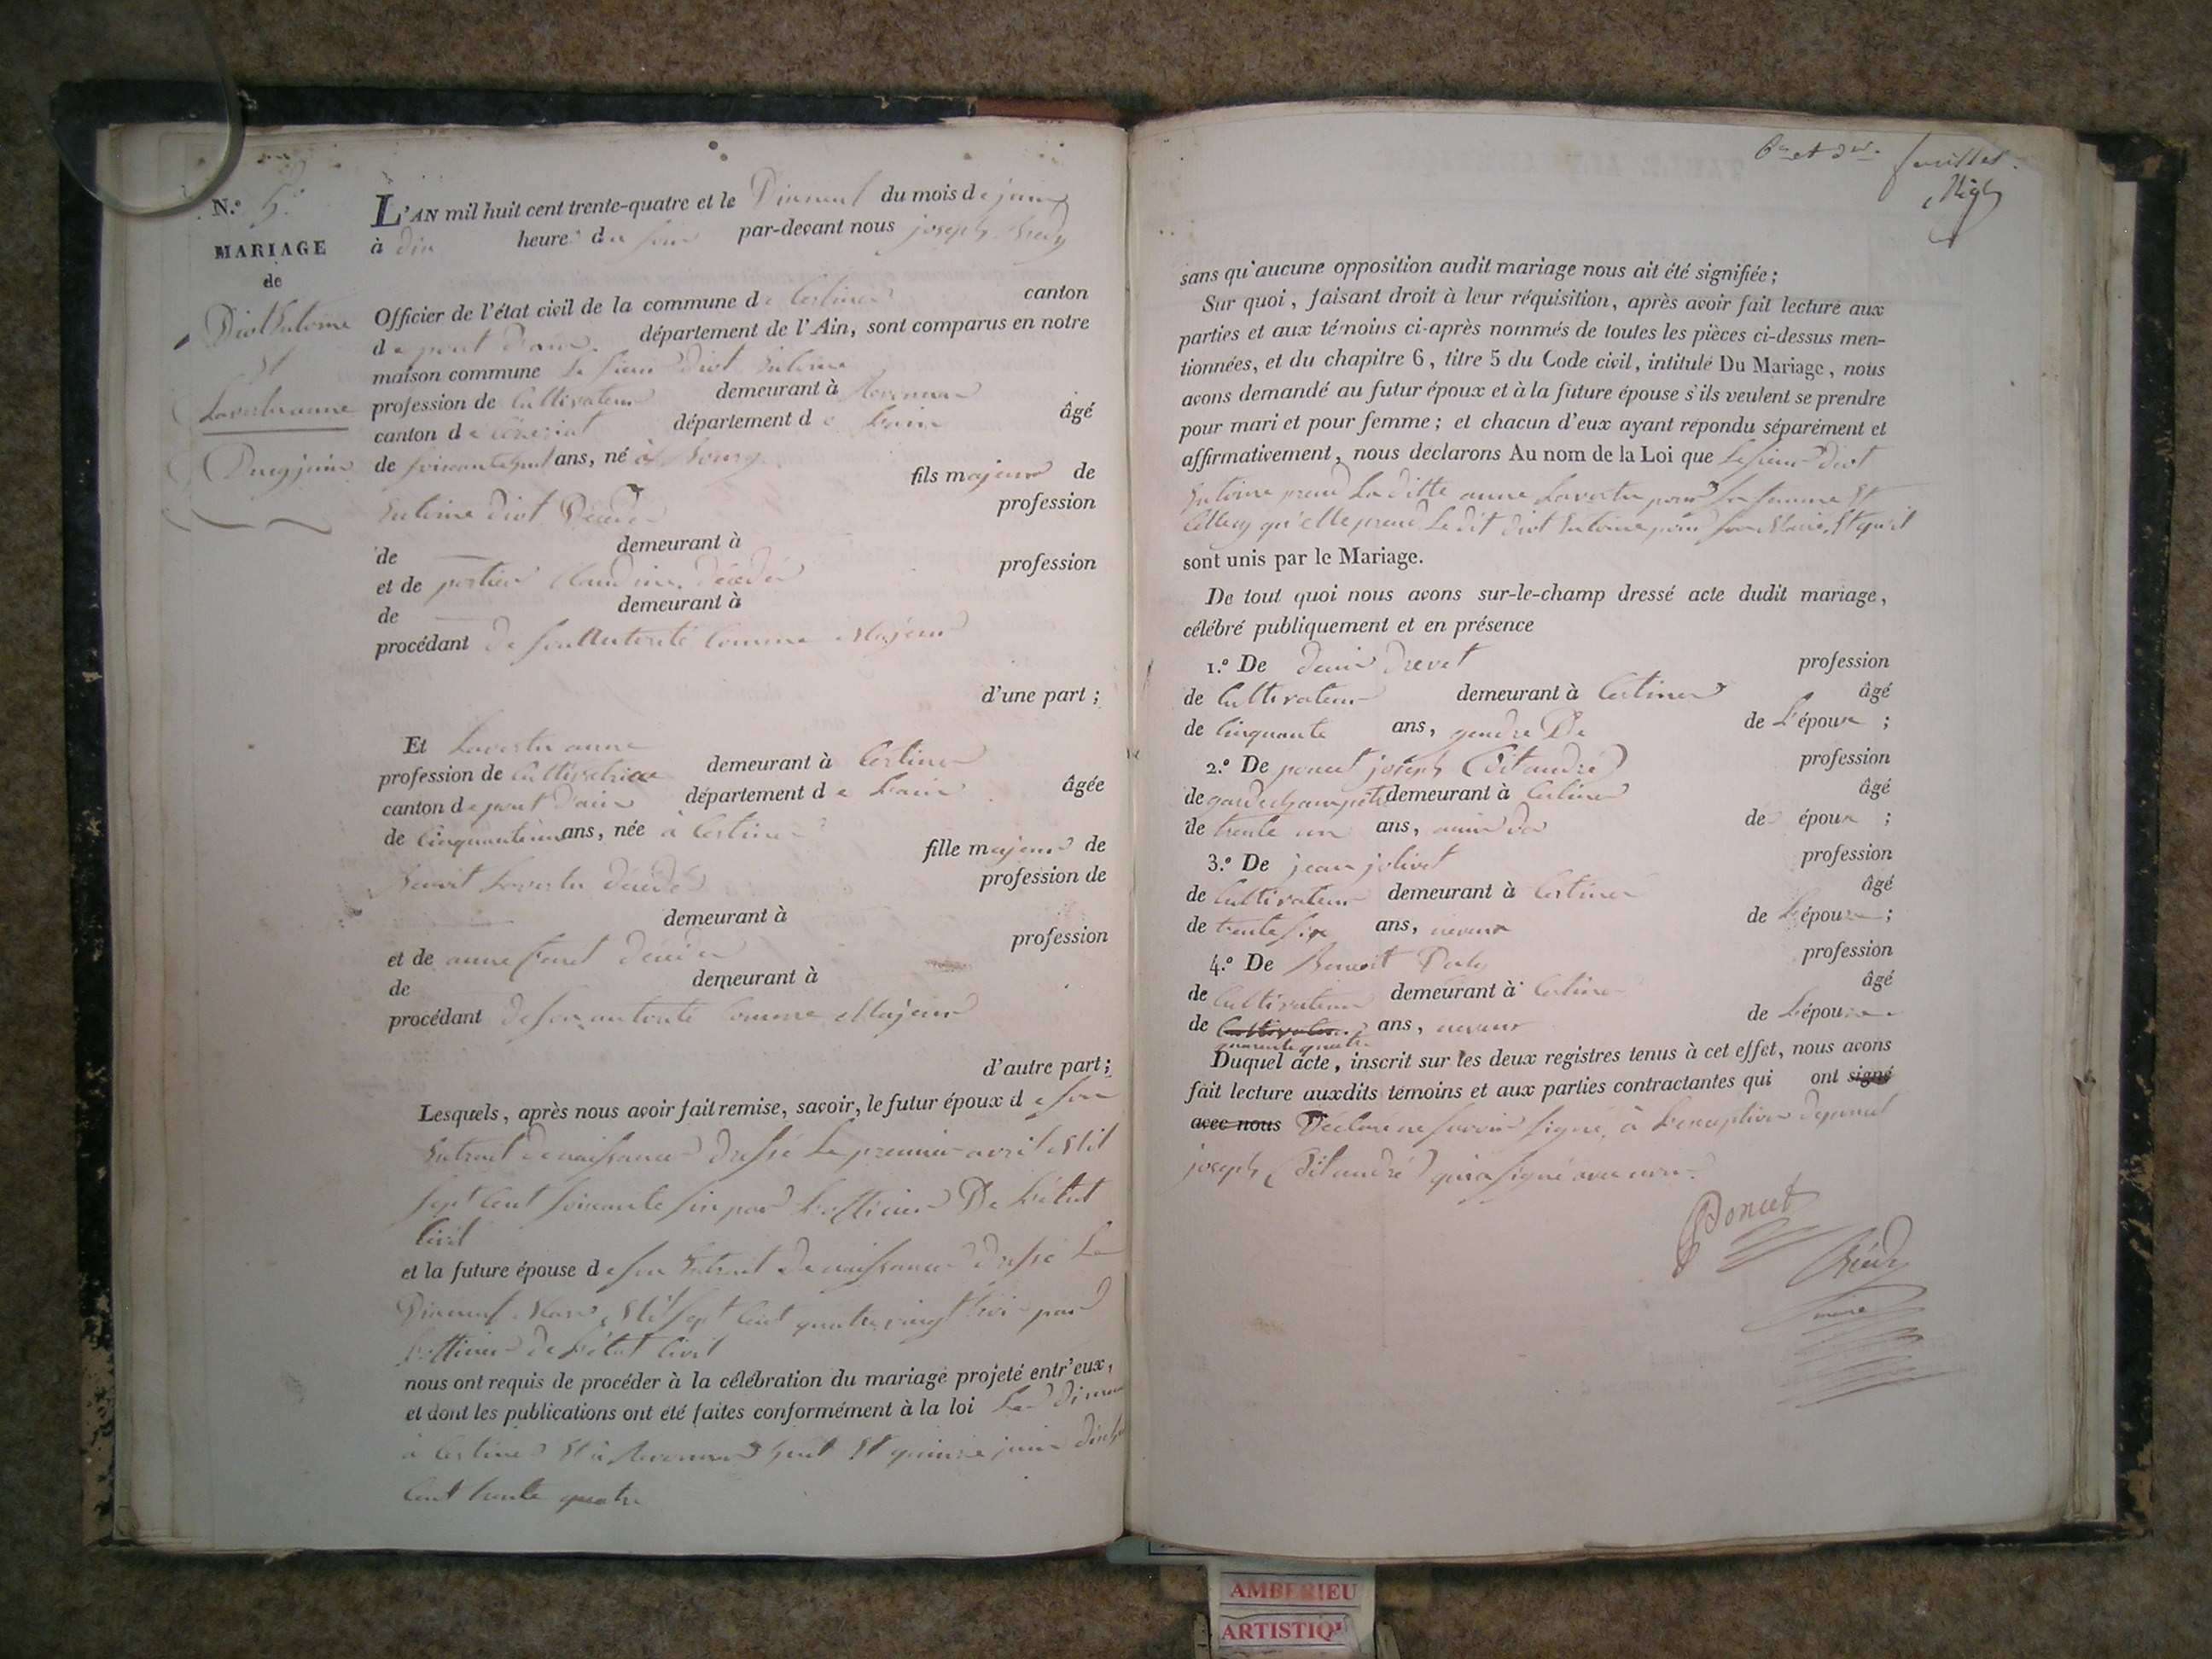 N.° 5.
MARIAGE
de
Diot Antoine
et
Lavertu anne
Du 19 juin
L'AN mil huit cent trente-quatre et le Dixneuf du mois de juin
à dix heures du soir par-devant nous joseph
Officier de l'état civil de la commune de Certines canton
de pont d'ain département de l'Ain, sont comparus en notre
maison commune Le sieur diot Antoine
profession de Cultivateur demeurant à
canton de département de L'ain âgé
de soixante huit ans, né à Bourg
fils majeur de
Antoine diot Décédé profession
de demeurant à
et de Claudine décédée profession
de demeurant à
procédant de son Autorité Comme Majeur
d'une part ;
Et Lavertu anne
profession de Cultivatrice demeurant à Certines
canton de pont d'ain département de L'ain âgée
de Cinquante un ans, née à Certines
fille majeure de
Benoit Lavertu décédé profession de
demeurant à
et de anne décédée profession
de demeurant à
procédant de son autorité Comme Majeur
d'autre part ;
Lesquels, après nous avoir fait remise, savoir, le futur époux de son
Extrait de naissance dressé Le premier avril Mil
sept Cent soixante six par L'officier De L'état
Civil
et la future épouse de son Extrait de naissance dressé Le
Dixneuf Mars Mil sept Cent quatre vingt trois par
L'officier de L'état Civil
nous ont requis de procéder à la célébration du mariage projeté entr'eux,
et dont les publications ont été faites conformément à la loi
à Certines Et à huit Et quinze juin dixhuit
Cent trente quatre
6me et der. feuillet.
sans qu'aucune opposition audit mariage nous ait été signifiée ;
Sur quoi, faisant droit à leur réquisition, après avoir fait lecture aux
parties et aux témoins ci-après nommés de toutes les pièces ci-dessus men-
tionnées, et du chapitre 6, titre 5 du Code civil, intitulé Du Mariage, nous
avons demandé au futur époux et à la future épouse s'ils veulent se prendre
pour mari et pour femme ; et chacun d'eux ayant répondu séparément et
affirmativement, nous déclarons Au nom de la Loi que Le sieur Diot
Antoine prend La ditte anne Lavertu pour sa femme Et
qu'elle prend Le dit diot Antoine pour son Marie, Et qu'il
sont unis par le Mariage.
De tout quoi nous avons sur-le-champ dressé acte dudit mariage,
célébré publiquement et en présence
1.° De denis drevet profession
de Cultivateur demeurant à Certines âgé
de Cinquante ans, gendre De de L'épouse ;
2.° De poncet joseph (dit andré) profession
de garde champêtre demeurant à Certines âgé
de trente un ans, ami des de époux ;
3.° De jean jolivet profession
de Cultivateur demeurant à Certines âgé
de trente six ans, neveux de L'épouse ;
4.° De Benoit profession
de Cultivateur demeurant à Certines âgé
de Cultivateur ans, neveux de L'épouse
quarante quatre
Duquel acte, inscrit sur les deux registres tenus à cet effet, nous avons
fait lecture auxdits témoins et aux parties contractantes qui ont signé
avec nous Déclaré ne savoir signé, à L'exception de poncet
joseph (dit andré) qui a signé avec nous.
Poncet
maire
AMBERIEU
ARTISTIQ